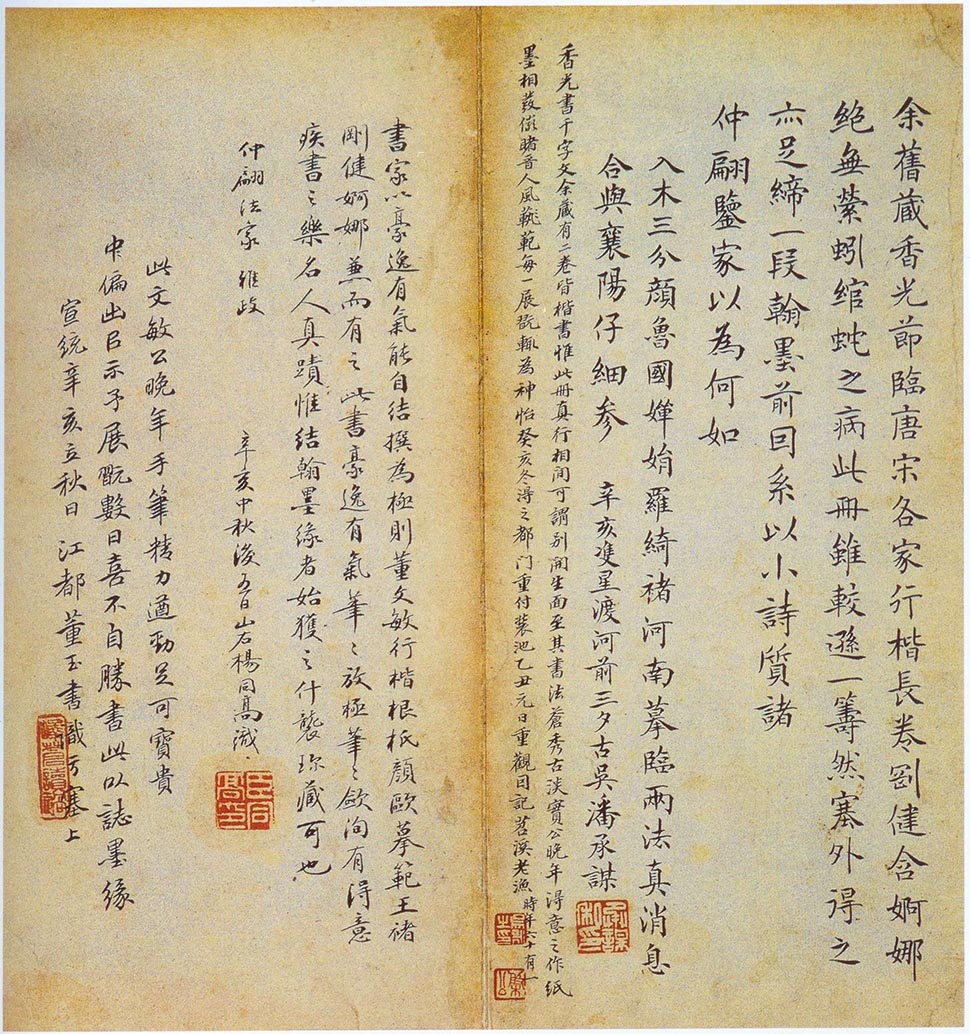 余舊蔵香光節臨唐宋各家行楷長卷剛健含婀娜
絕無縈蚓綰蛇之病此冊雖較遜一籌然塞外得之
亦足締一段翰墨前因系以小詩質諸
仲翩鑒家以為何如
入木三分顏魯國嬋娟羅綺褚河南摹臨兩法真消息
合與襄陽仔細參
辛亥雙星渡河前三夕古吳潘承謀
香光書千字文余蔵有二卷皆楷書惟此冊真行相間可謂別開生面至其書法蒼秀古淡實公晚年得意之作紙
墨相發儼睹晉人風軌範每一展翫輒為神怡癸亥冬得之都门重付裝池乙丑元日重觀因記苕溪老漁時年六十有一
書家以豪逸有氣能自結撰為極則董文敏行楷根柢顏歐摹範王褚
剛健婀娜兼而有之此書豪逸有氣筆々放極筆々歛洵有得意
疾書之樂名人真蹟惟結翰墨緣者始獲之什襲珎藏可也
仲翩法家雅政
辛亥中秋後五日山右楊同高識
此文敏公晚年手筆精力遒勁足可寶貴
中偏出㠯示予展翫數日喜不自勝書此以誌墨緣
宣統辛亥立秋日江都董玉書識于塞上